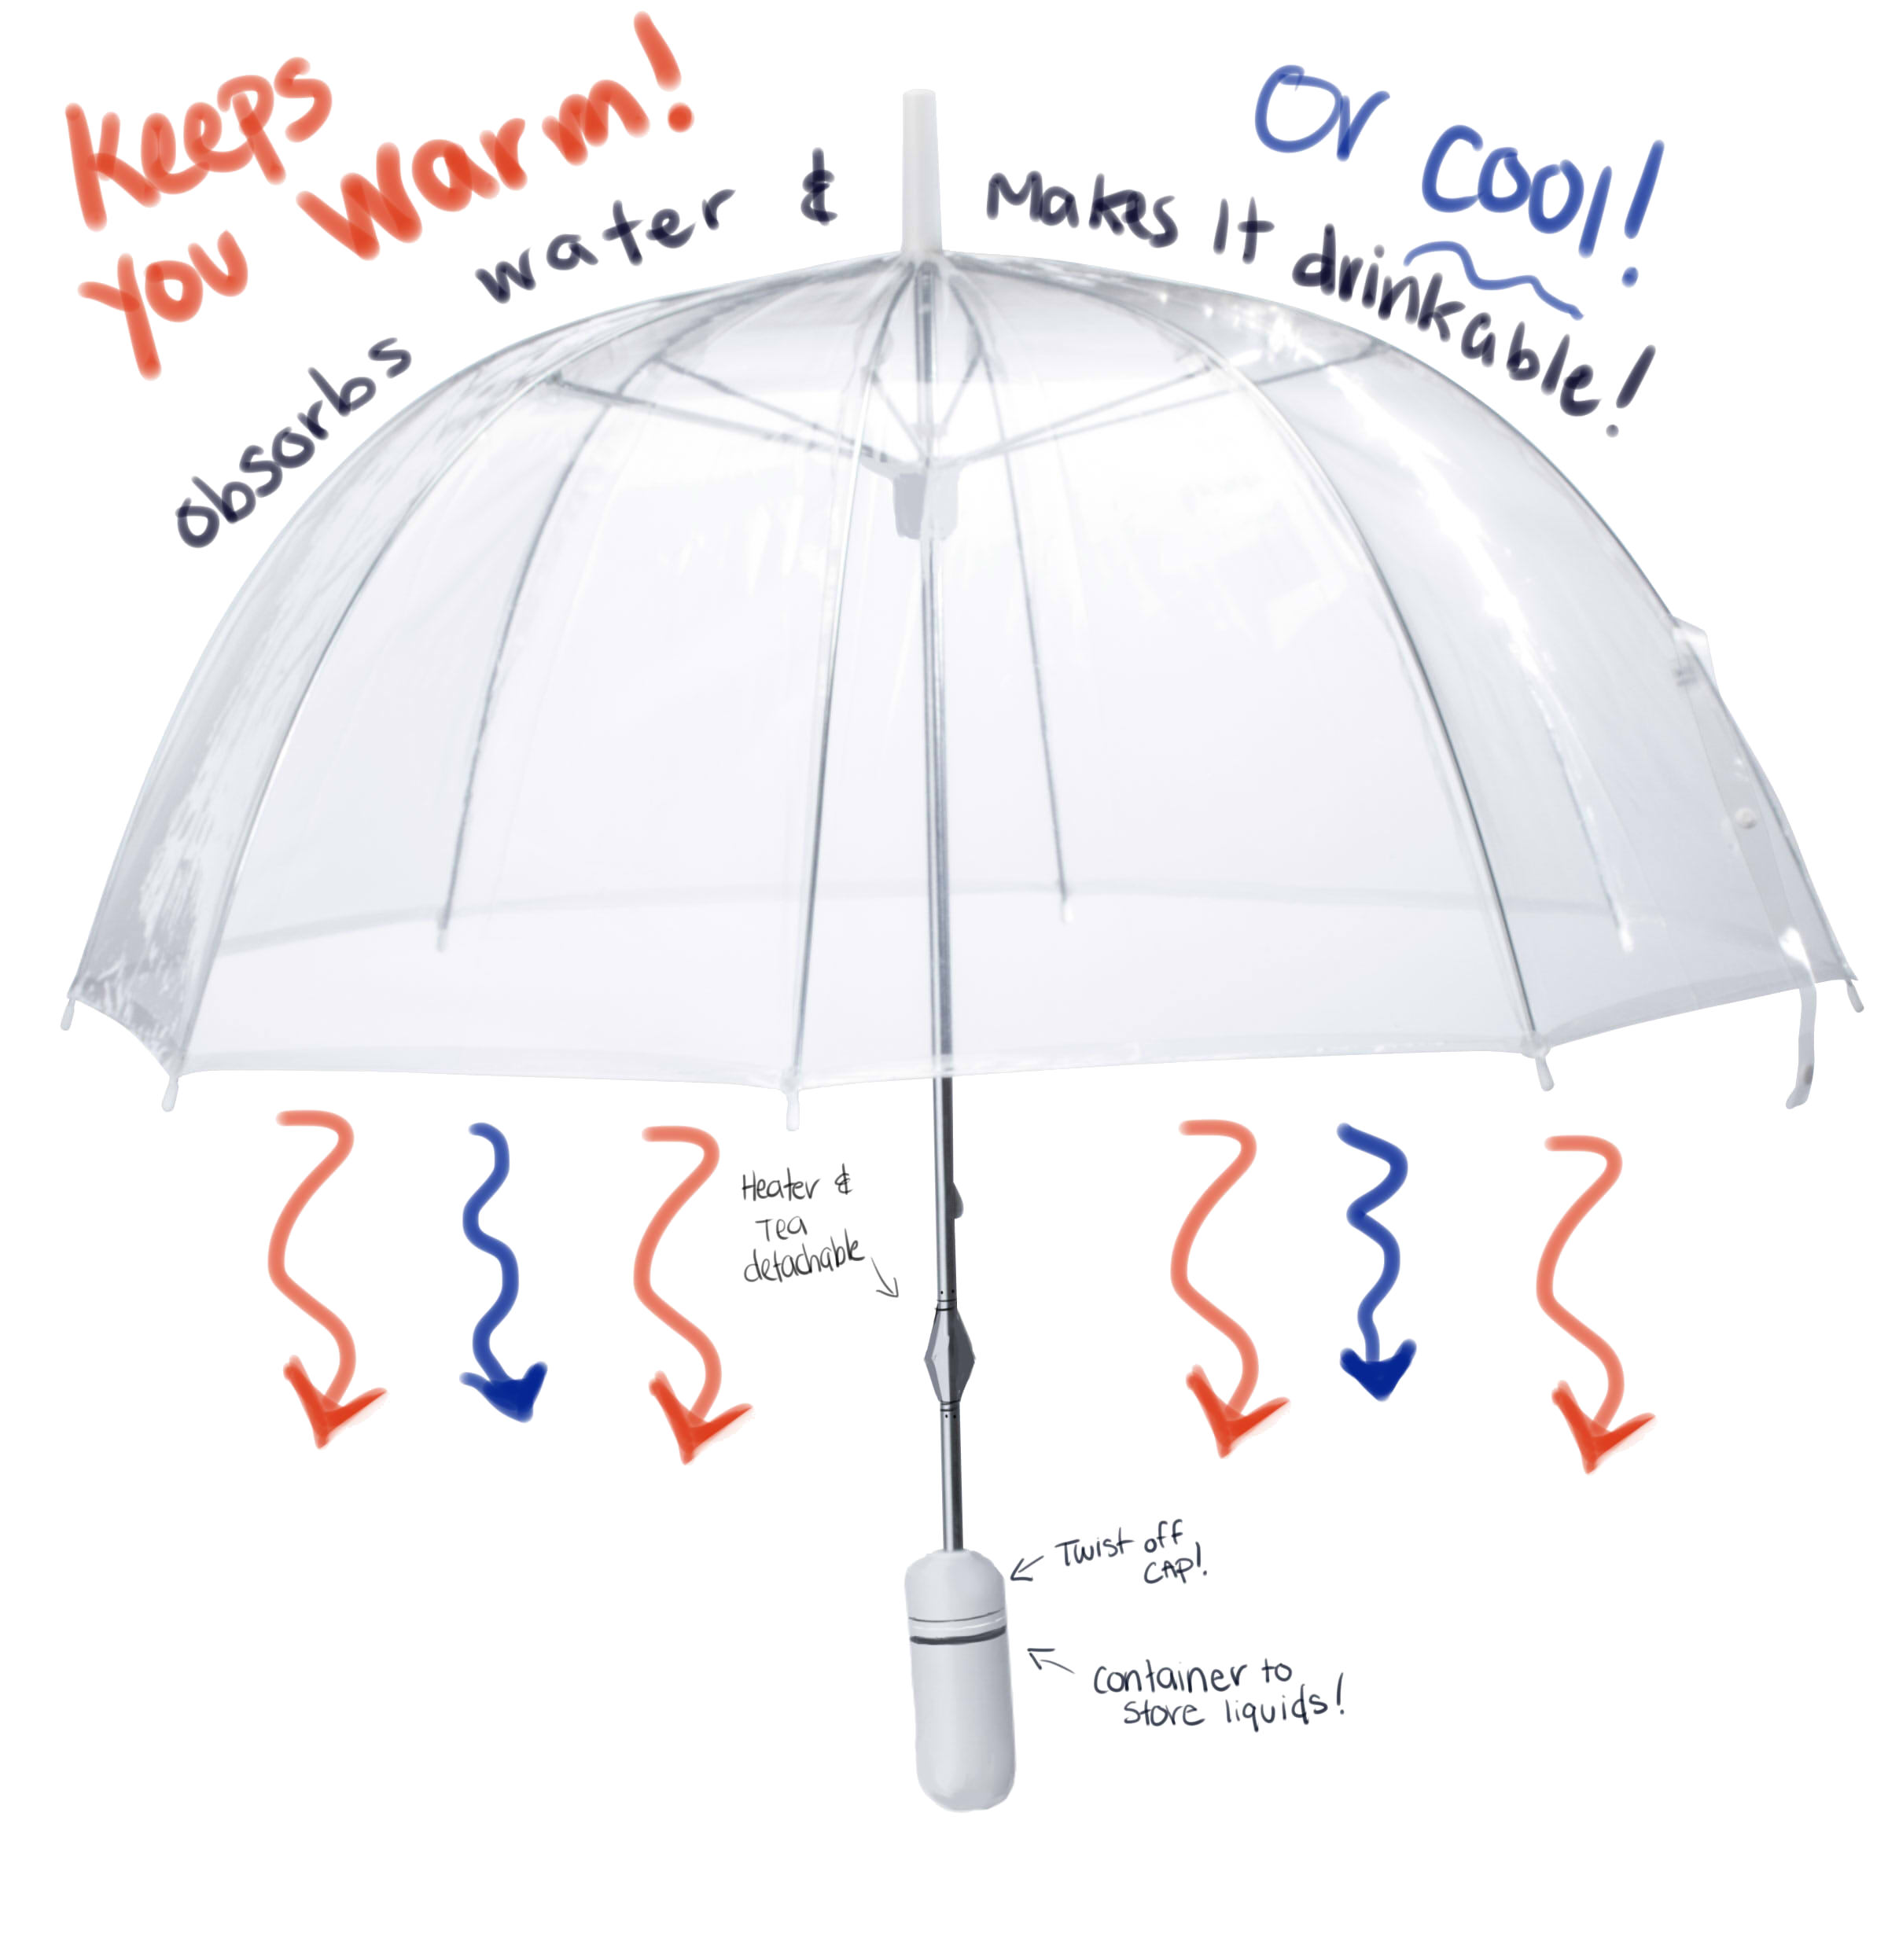 Keeps
you warm!
Or cool!
absorbs water & Makes it drinkable!
Heater &
Tea
detachable
Twist off
CAP!
container to
store liquids!